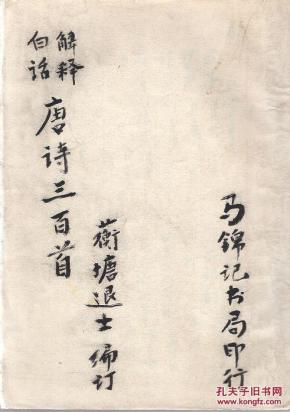 解释
白话
唐诗三百首
蘅塘退士编订
马锦记书局印行
孔夫子旧书网